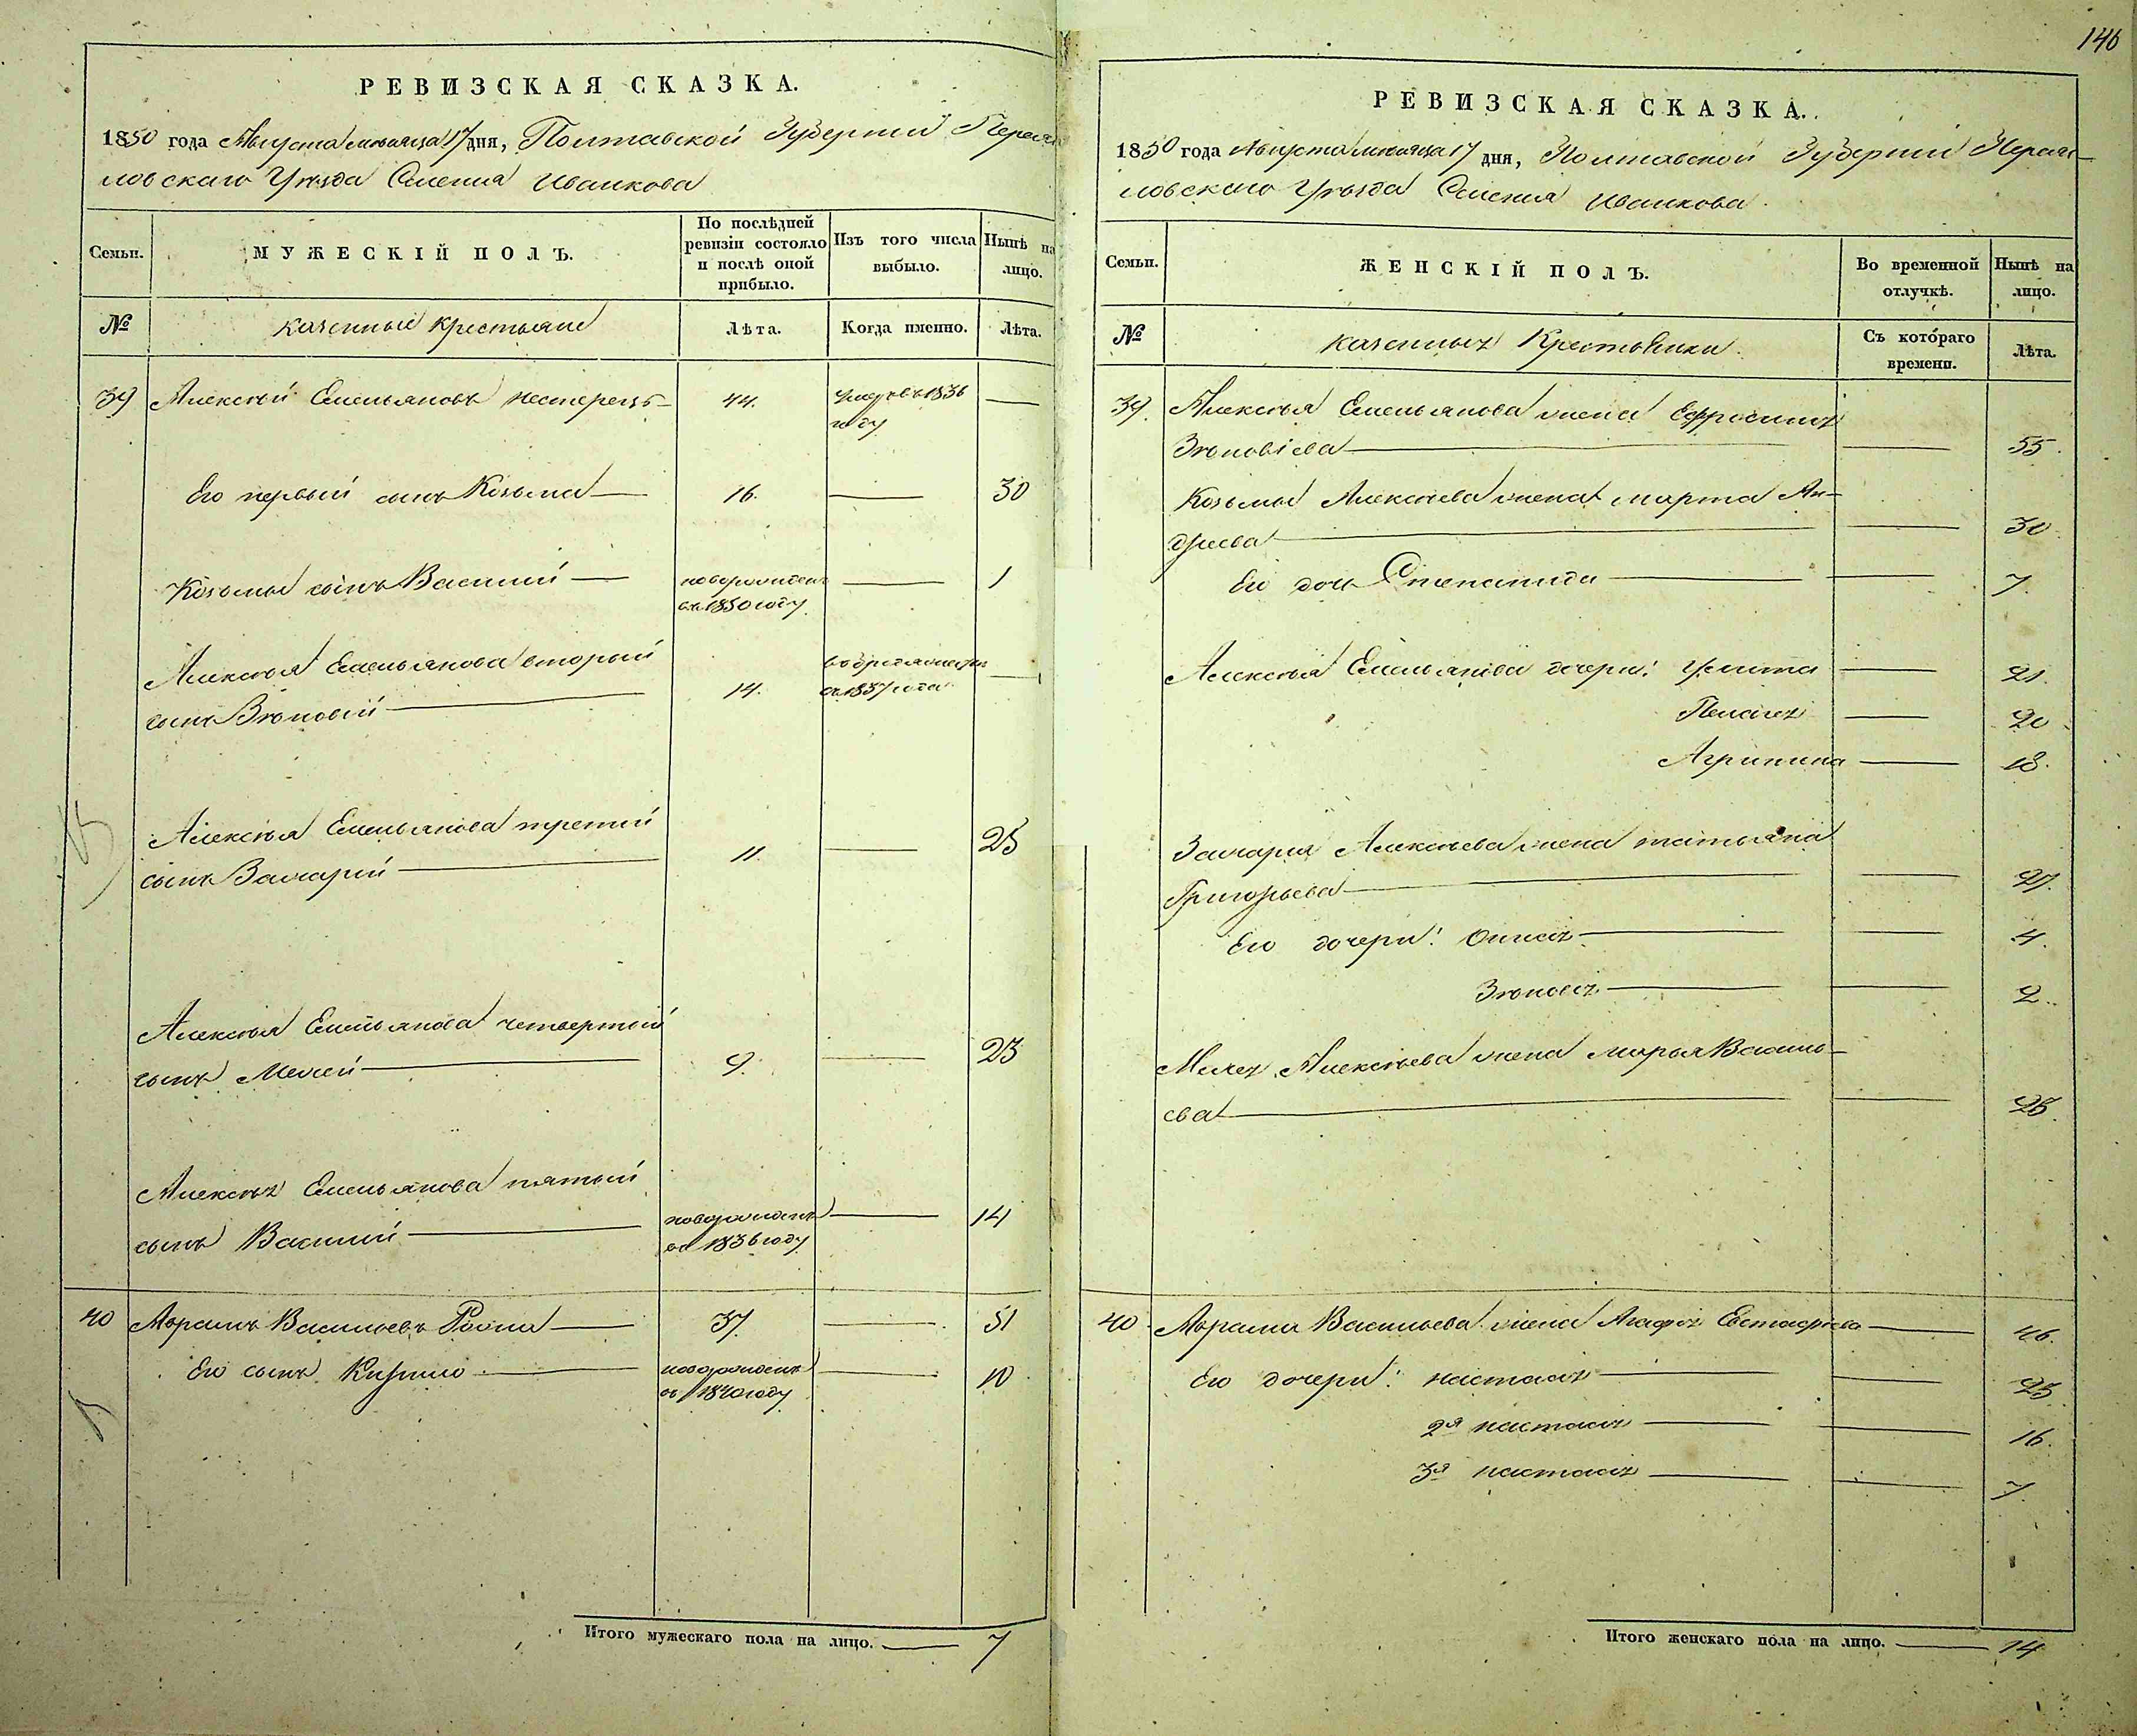 РЕВИЗСКАЯ СКАЗКА.
1850 года Августа месяца 17 дня, Полтавской Губернии Переяс
ловскаго Уѣзда Селения Иванкова
Семьи.
МУЖЕСКІЙ ПОЛЪ.
По послѣдней ревизіи состояло и послѣ оной прибыло.
Изъ того числа выбыло.
Нынѣ на лицо.
№
казенные крестьяне
Лѣта.
Когда именно.
Лѣта.
39 Алексѣй Емельяновъ нестерецъ 44. умеръ въ 1836
году
Его первый сынъ Козьма 16. 30
Козьмы сынъ Василий новорожденъ 1
въ 1850 году
Алексѣя Емельянова вторый
сынъ Зѣновій 14. съ 1837 года
Алексѣя Емельянова третий
сынъ Захарий 11. 25
Алексѣя Емельянова четвертый
сынъ Мелей 9. 23
Алексѣя Емельянова пятый
сынъ Василий новорожденъ 14
въ 1836 году
40 Абрамъ Васильевъ 37. 51
Его сынъ Кирило новорожденъ 10
въ 1840 году
Итого мужескаго пола на лицо. 7
146
РЕВИЗСКАЯ СКАЗКА.
1850 года Августа месяца 17 дня, Полтавской Губернии Переяс-
ловскаго Уѣзда Селения Иванкова.
Семьи.
ЖЕНСКІЙ ПОЛЪ.
Во временной отлучкѣ.
Нынѣ на лицо.
№
казенныхъ Крестьянки.
Съ котораго времени.
Лѣта.
39. Алексѣя Емельянова жена Ефросиния
Зѣновіева 55.
Козьмы Алексѣева жена марта Ан-
дреева 30.
Его дочь Степанида 7.
Алексѣя Емельянова дочери: Улита 21.
Пелагея 20.
Агрипина 18.
Захария Алексѣева жена татьяна
Григорьева 27.
Его дочери: 4.
Зѣновия 2.
Мелея Алексѣева жена марья Василь-
ева 25.
40. Абрама Васильева жена Агафия Евстафиева 46.
Его дочери: настасия 25.
2я настасия 16.
3я настасия 7.
Итого женскаго пола на лицо. 14